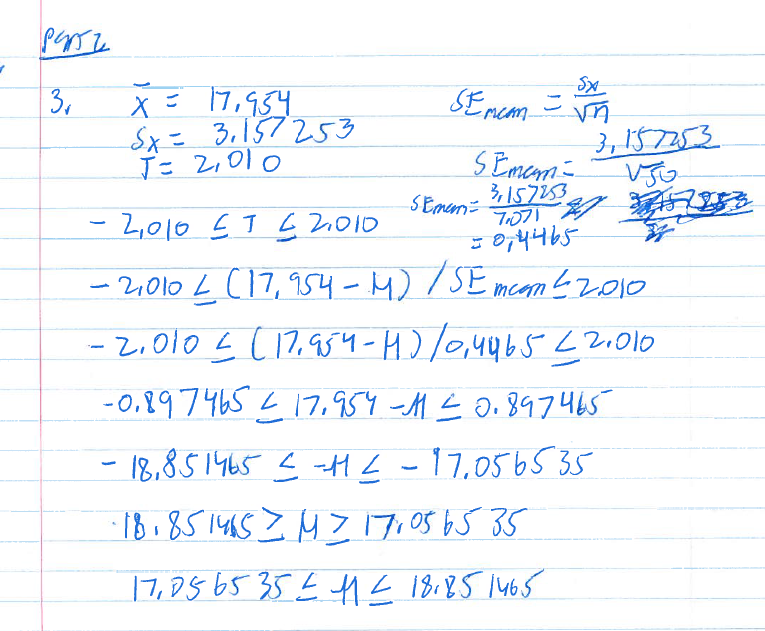 Part 2
3. x̄ = 17.954
Sx = 3.157253
T = 2.010
SEmean = Sx/√n
SEmean = 3.157253/√50
SEmean = 3.157253/7.071
= 0.4465
-2.010 ≤ T ≤ 2.010
-2.010 ≤ (17.954 - M) / SEmean ≤ 2.010
-2.010 ≤ (17.954 - M) / 0.4465 ≤ 2.010
-0.897465 ≤ 17.954 - M ≤ 0.897465
-18.851465 ≤ -M ≤ -17.056535
18.851465 ≥ M ≥ 17.056535
17.056535 ≤ M ≤ 18.851465